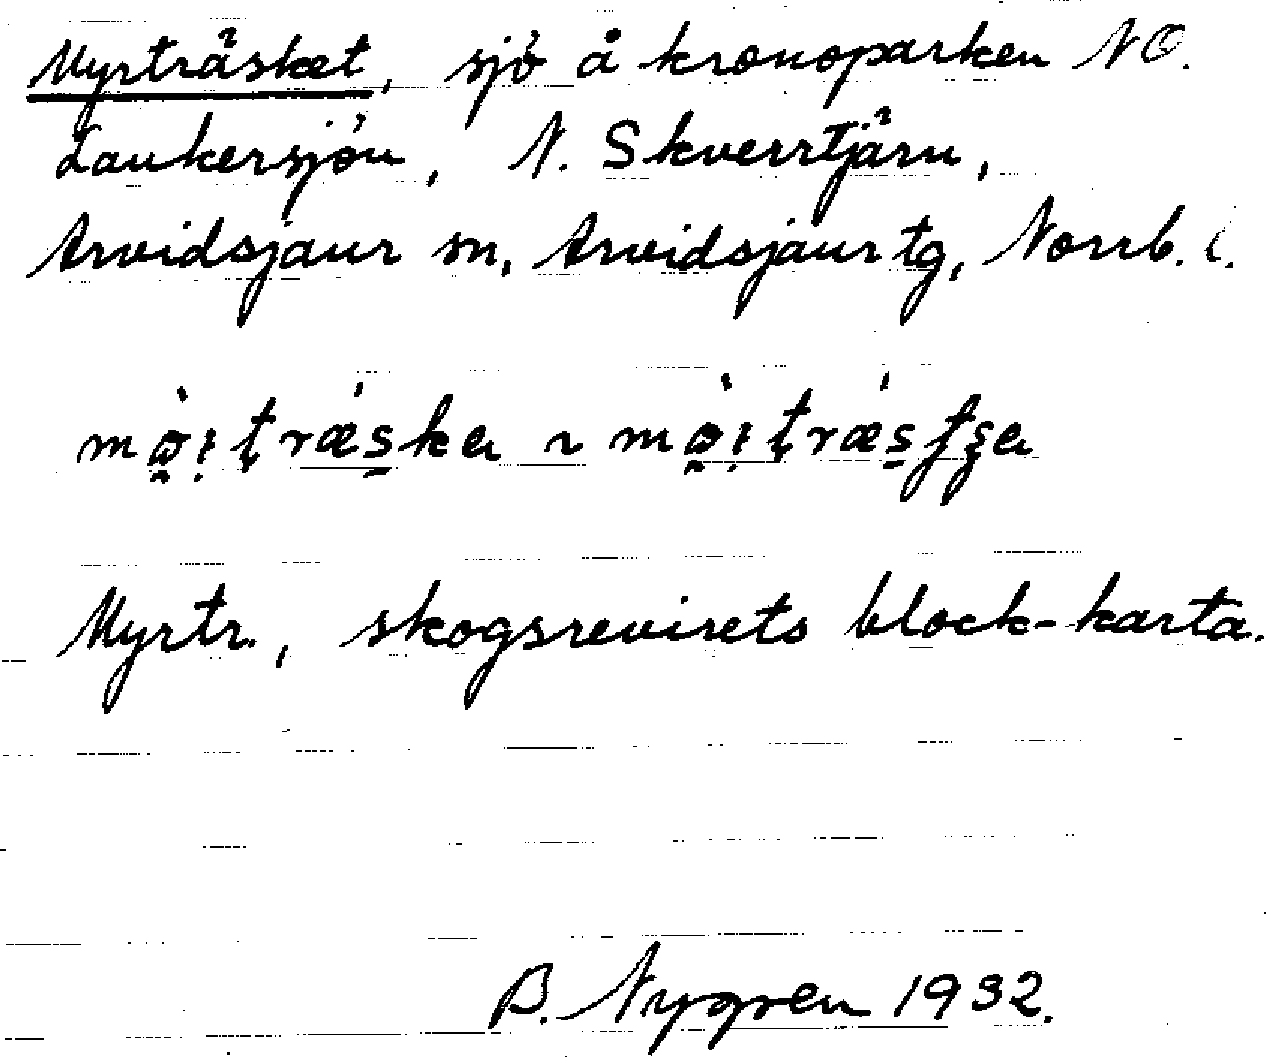 Myrträsket, sjö å kronoparken NO.
Laukersjön, N. Skverrtjärn,
Arvidsjaur sn, Arvidsjaur tg, Norrb. l.
Myrtr., skogsrevirets block-karta.
B. Nygren 1932.